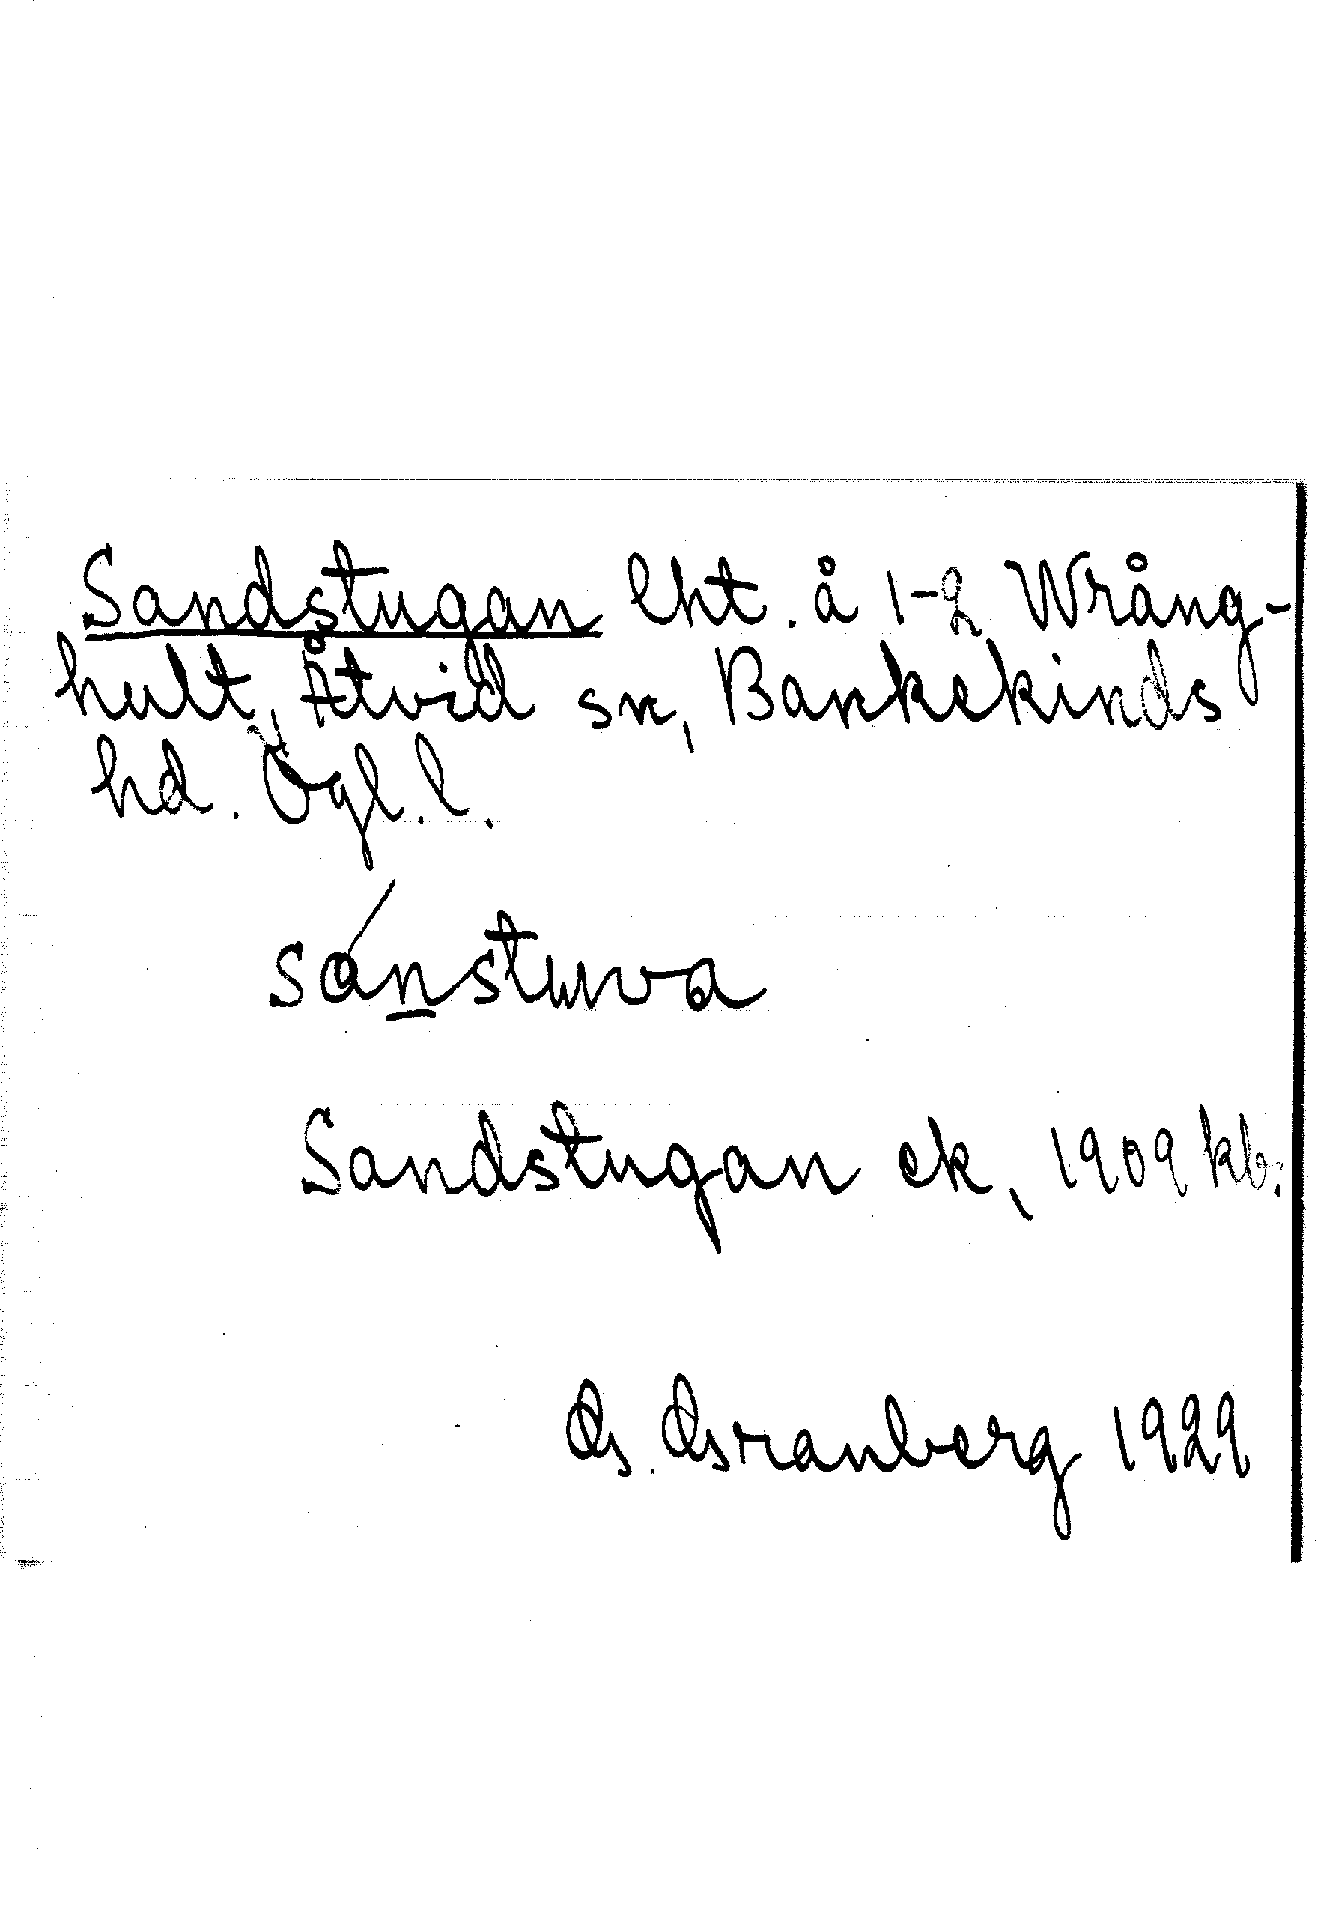 Sandstugan lht. å 1-2 Wrång-
hult, Åtvid sn, Bankekinds
hd. Ögl. l.
sánstuwa
Sandstugan ek, 1909 kb.
G. Granberg 1929